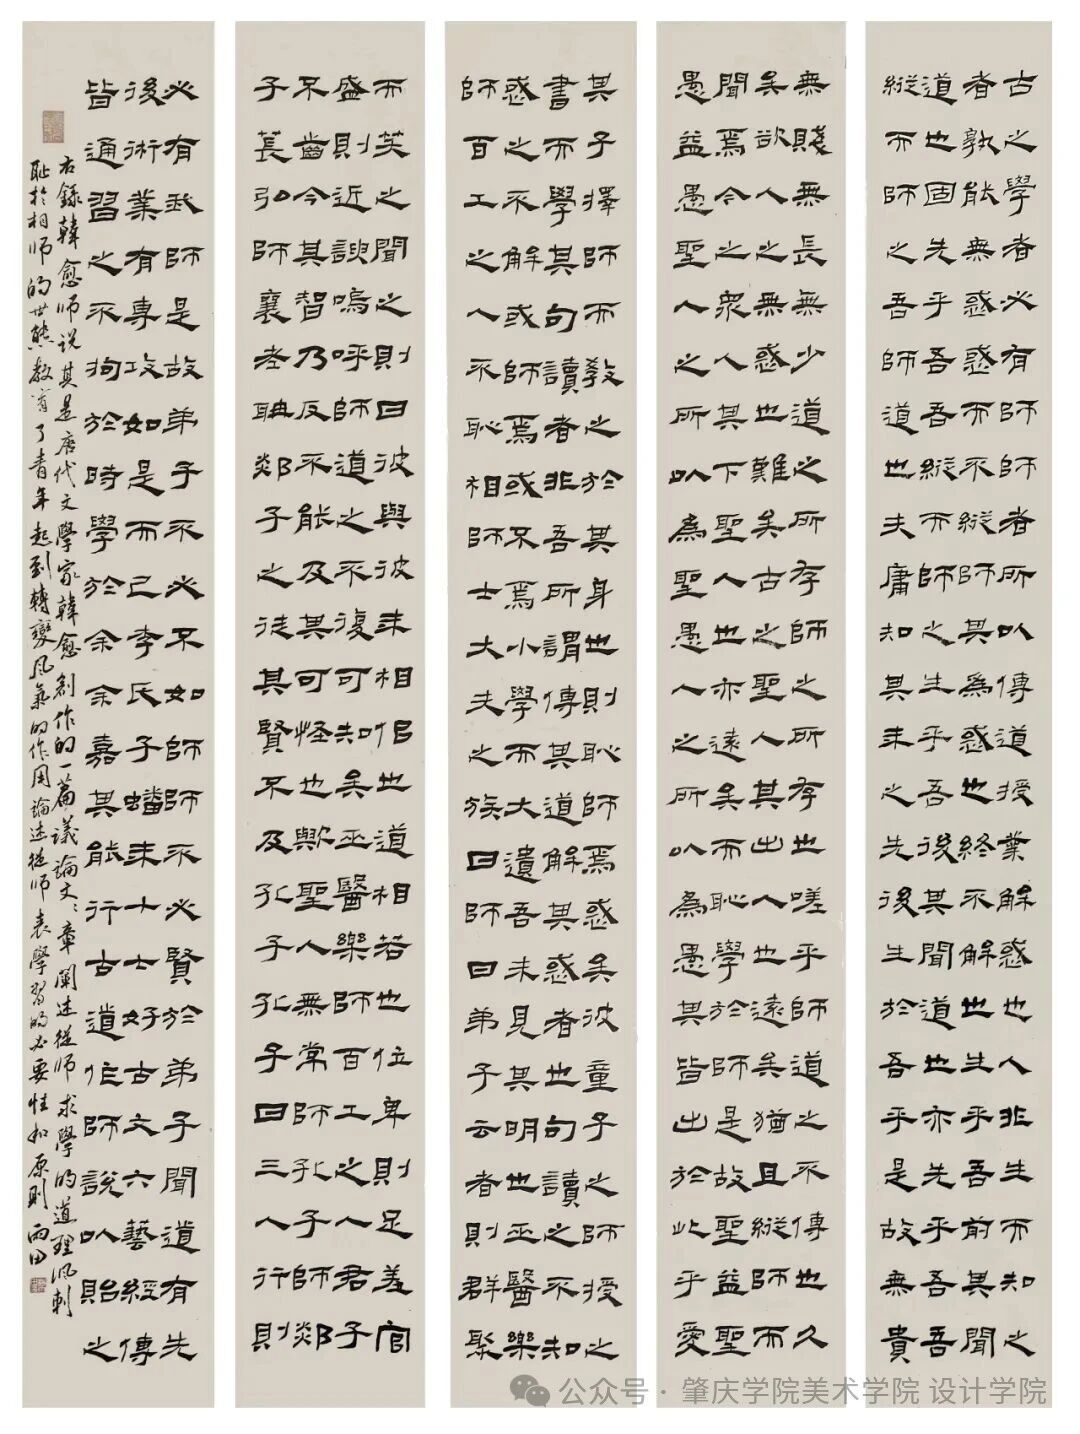 古之學者必有師師者所以傳道授業解惑也人非生而知之
者孰能無惑惑而不縱師其為惑也終不解也生乎吾前其聞
道也固先乎吾吾縱而師之生乎吾後其聞道也亦先乎吾吾
縱而師之吾師道也夫庸知其年之先後生於吾乎是故無貴
無賤無長無少道之所存師之所存也嗟乎師道之不傳也久
矣欲人之無惑也難矣古之聖人其出人也遠矣猶且縱師而
聞焉今之眾人其下聖人也亦遠矣而恥學於師是故聖益聖
愚益愚聖人之所以為聖愚人之所以為愚其皆出於此乎愛
其子擇師而教之於其身也則恥師焉惑矣彼童子之師授之
書而學其句讀者非吾所謂傳其道解其惑者也句讀之不知
惑之不解或師焉或不焉小學而大遺吾未見其明也巫醫樂
師百工之人不恥相師士大夫之族曰師曰弟子云者則群聚
而笑之聞之則曰彼與彼年相佀也道相若也位卑則足羞官
盛則近諛嗚呼師道之不復可知矣巫醫樂師百工之人君子
不齒今其智乃反不能及其可怪也歟聖人無常師孔子師郯
子萇弘師襄老聃郯子之徒其賢不及孔子孔子曰三人行則
必有我師是故弟子不必不如師師不必賢於弟子聞道有先
後術業有專攻如是而已李氏子蟠年十七好古文六藝經傳
皆通習之不拘於時學於余余嘉其能行古道作師說以貽之
右錄韓愈师说其是唐代文學家韓愈創作的一篇議論文、章闡述從师求學的道理諷刺
耻於相师的世態教育了青年起到轉變風氣的作用論述從师表學習的必要性和原則 雨田
公众号·肇庆学院美术学院 设计学院